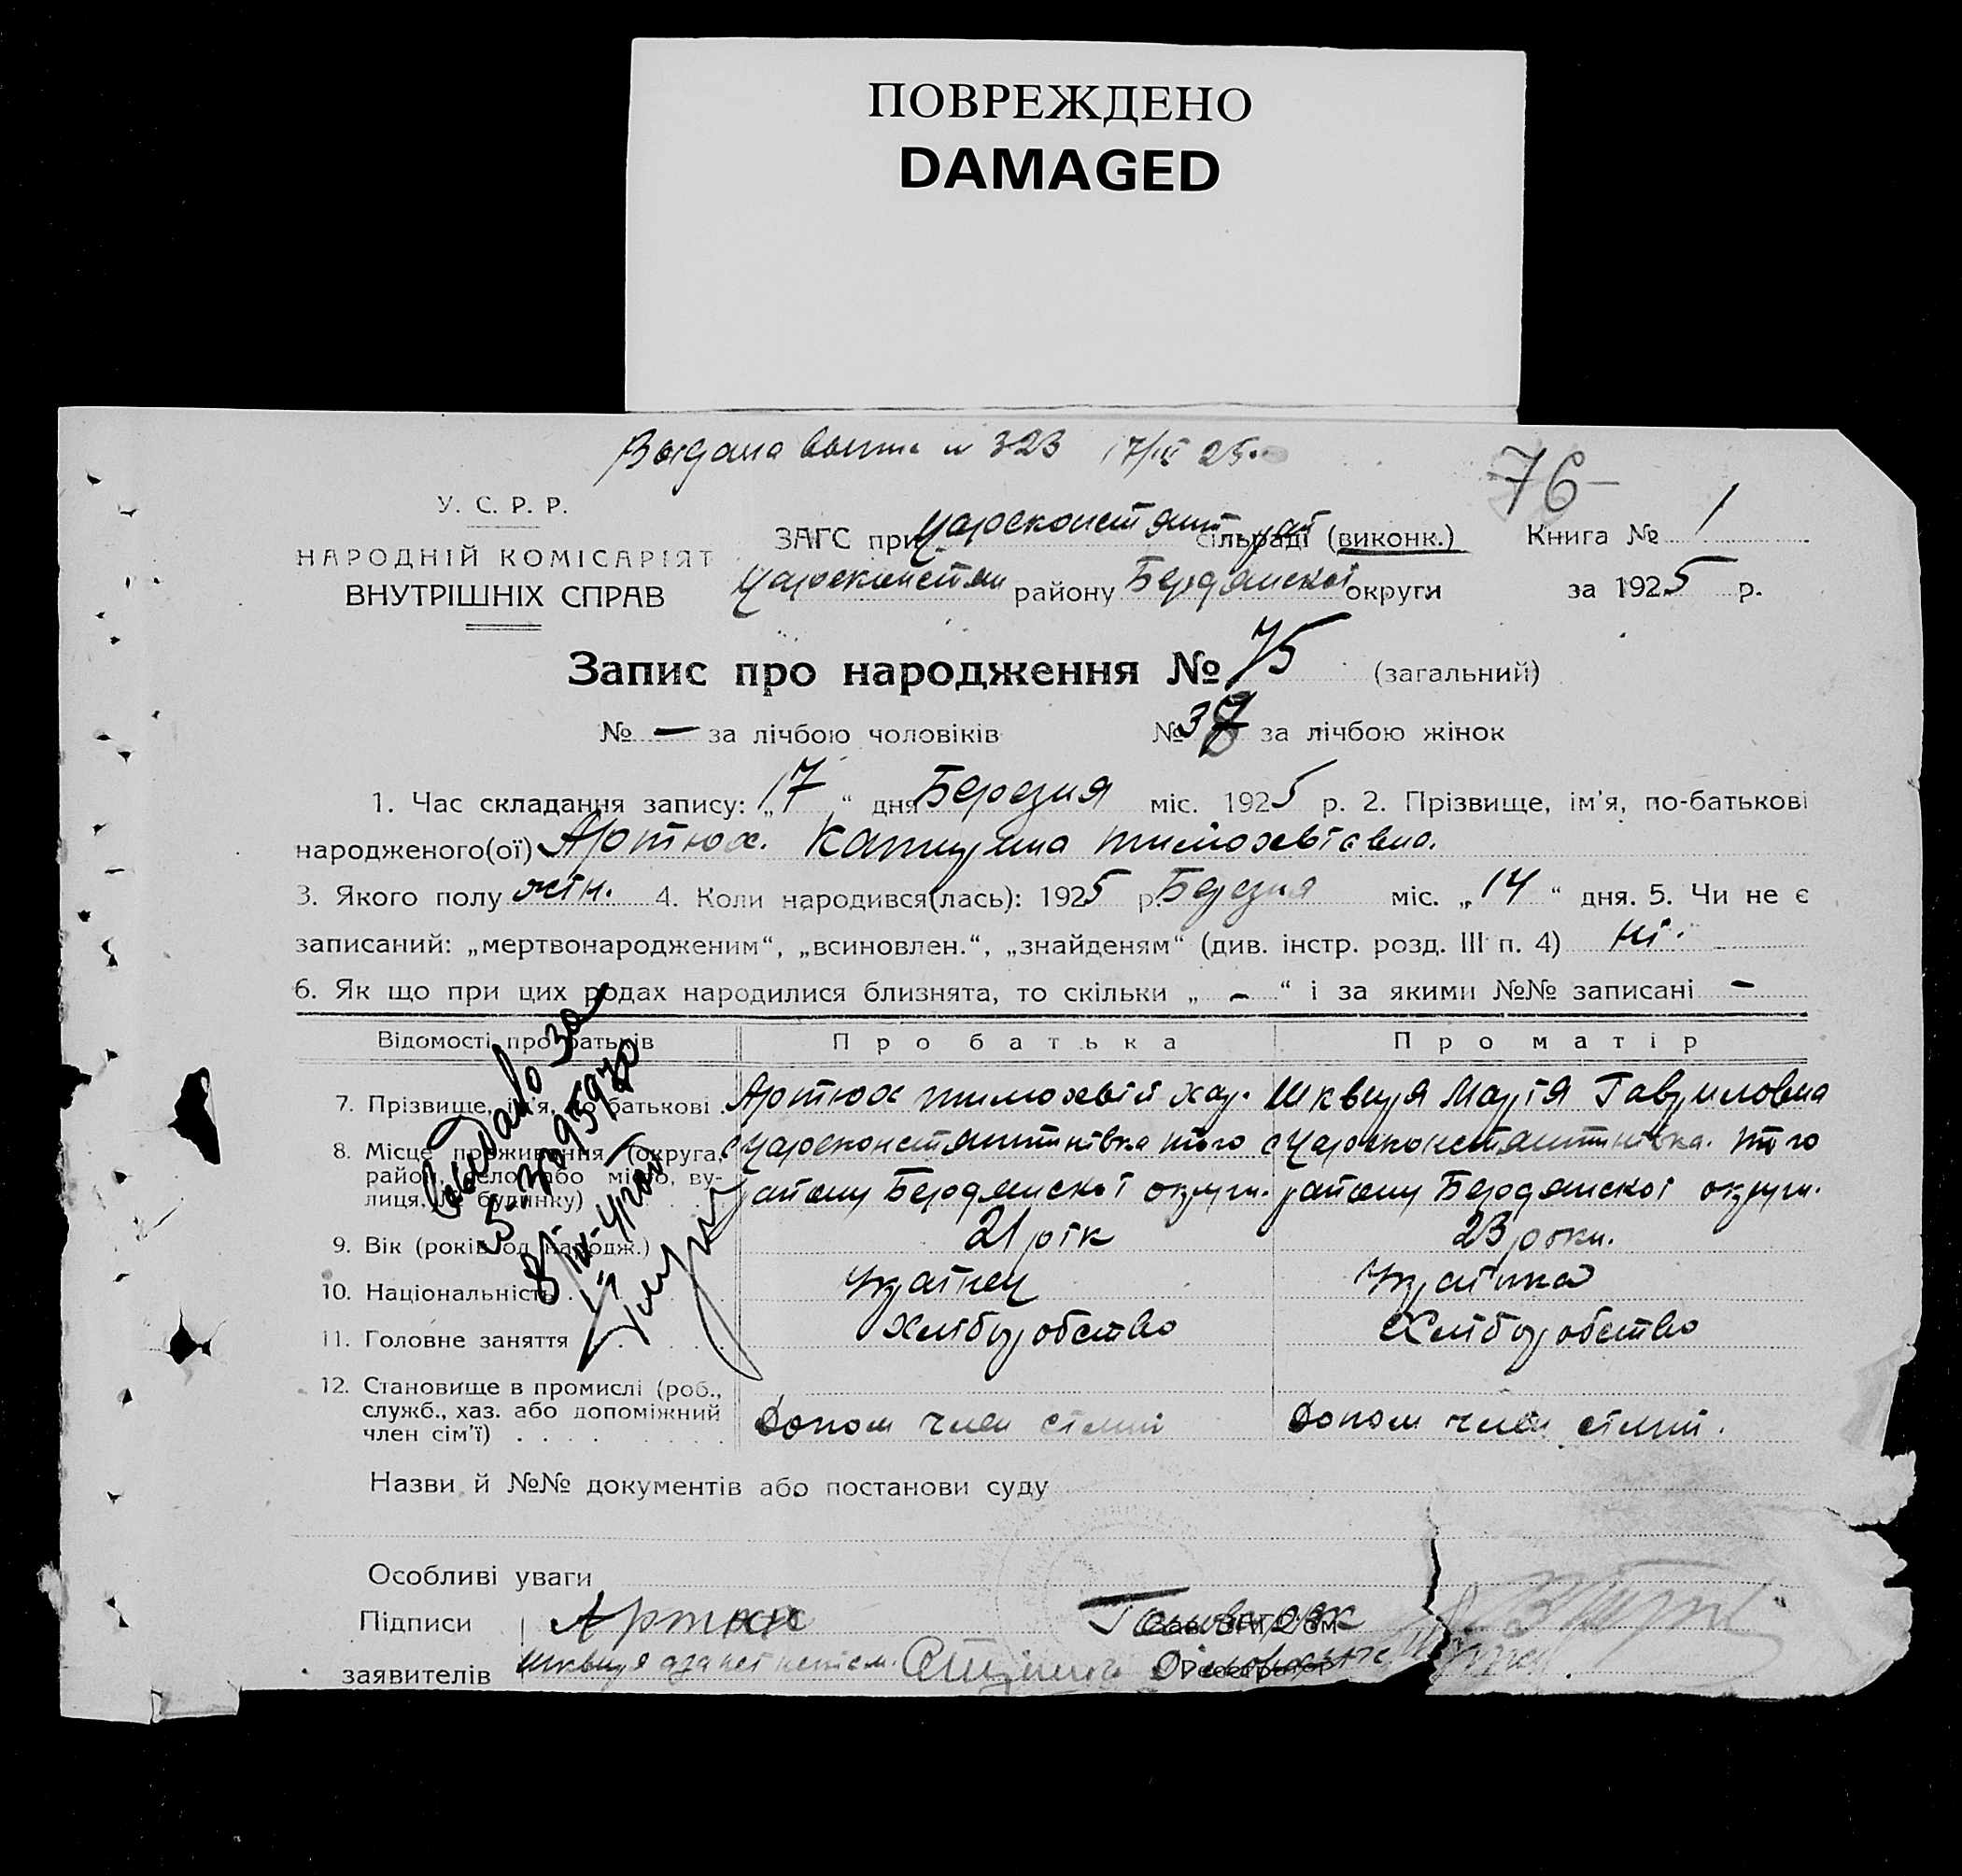 ПОВРЕЖДЕНО
DAMAGED
Выдана выпис № 323 17/III 25
76
У. С. Р. Р.
НАРОДНІЙ КОМІСАРІЯТ
ВНУТРІШНІХ СПРАВ
ЗАГС при Царсконстянт рай сільраді (виконк.) Книга № 1
Царсконстян району Бердянської округи за 1925 р.
Запис про народження № 75 (загальний)
№ — за лічбою чоловіків № 37 за лічбою жінок
1. Час складання запису: „17“ дня Березня міс. 1925 р. 2. Прізвище, ім'я, по-батькові
народженого(ої) Артюх. Катерина Тимохвіівна.
3. Якого полу жін. 4. Коли народився(лась): 1925 р. Березня міс. „14“ дня. 5. Чи не є
записаний: „мертвонародженим“, „всиновлен.“, „знайденям“ (див. інстр. розд. III п. 4) ні.
6. Як що при цих родах народилися близнята, то скільки „ – “ і за якими №№ записані –
Відомості про батьків Про батька Про матір
7. Прізвище, ім'я, по батькові Артюх Тимохвій Хар. Шквиря Марія Гавриловна
8. Місце проживання (округа, с Царсконстянтинівка того с Царсконстянтинівка. того
район, село або місто, ву- району Бердянської округи. району Бердянської округи.
лиця, № будинку)
9. Вік (років од народж.) 21 рік 23 роки.
10. Національність Украінец Украінка
11. Головне заняття Хліборобство Хліборобство
12. Становище в промислі (роб.,
служб., хаз. або допоміжний Допом член сімії Допом член сімії.
член сім'ї)
Видано
Назви й №№ документів або постанови суду
Особливі уваги
Підписи Артюх Зав. ЗАГС'ом
заявителів Шквиря Реєстратор